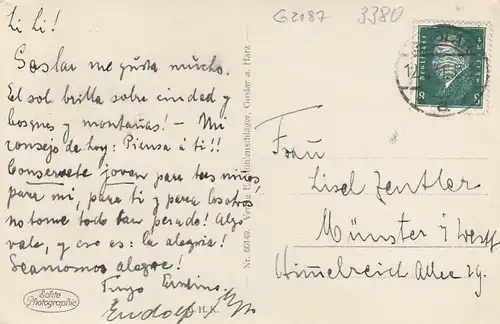 Li Li!
Goslar me gusta mucho.
El sol brilla sobre ciudad y
bosques y montañas! – Mi
consejo de hoy: Piensa á ti!!
Conservate joven para tus niños,
para mi, para ti y para los otros,
no tome todo tan pesado! Algo
vale, y eso es: la alegria!
Seamosnos alegre!
Tuyo
Rudolf
Echte
Photographie
G2187
3380
Nr. 60149. Verlag Mühlenschlager, Goslar a. Harz
H. K.
8 8
Frau
Lisel Zentler
Münster i/Westf
Himmelreich Allee 29.